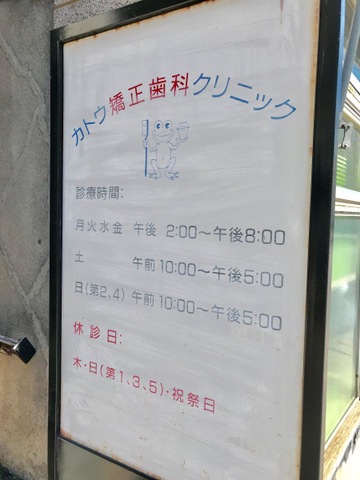 カトウ矯正歯科クリニック
診療時間:
月火水金 午後 2:00〜午後8:00
土 午前10:00〜午後5:00
日(第2,4) 午前10:00〜午後5:00
休診日:
木・日(第1、3、5)・祝祭日